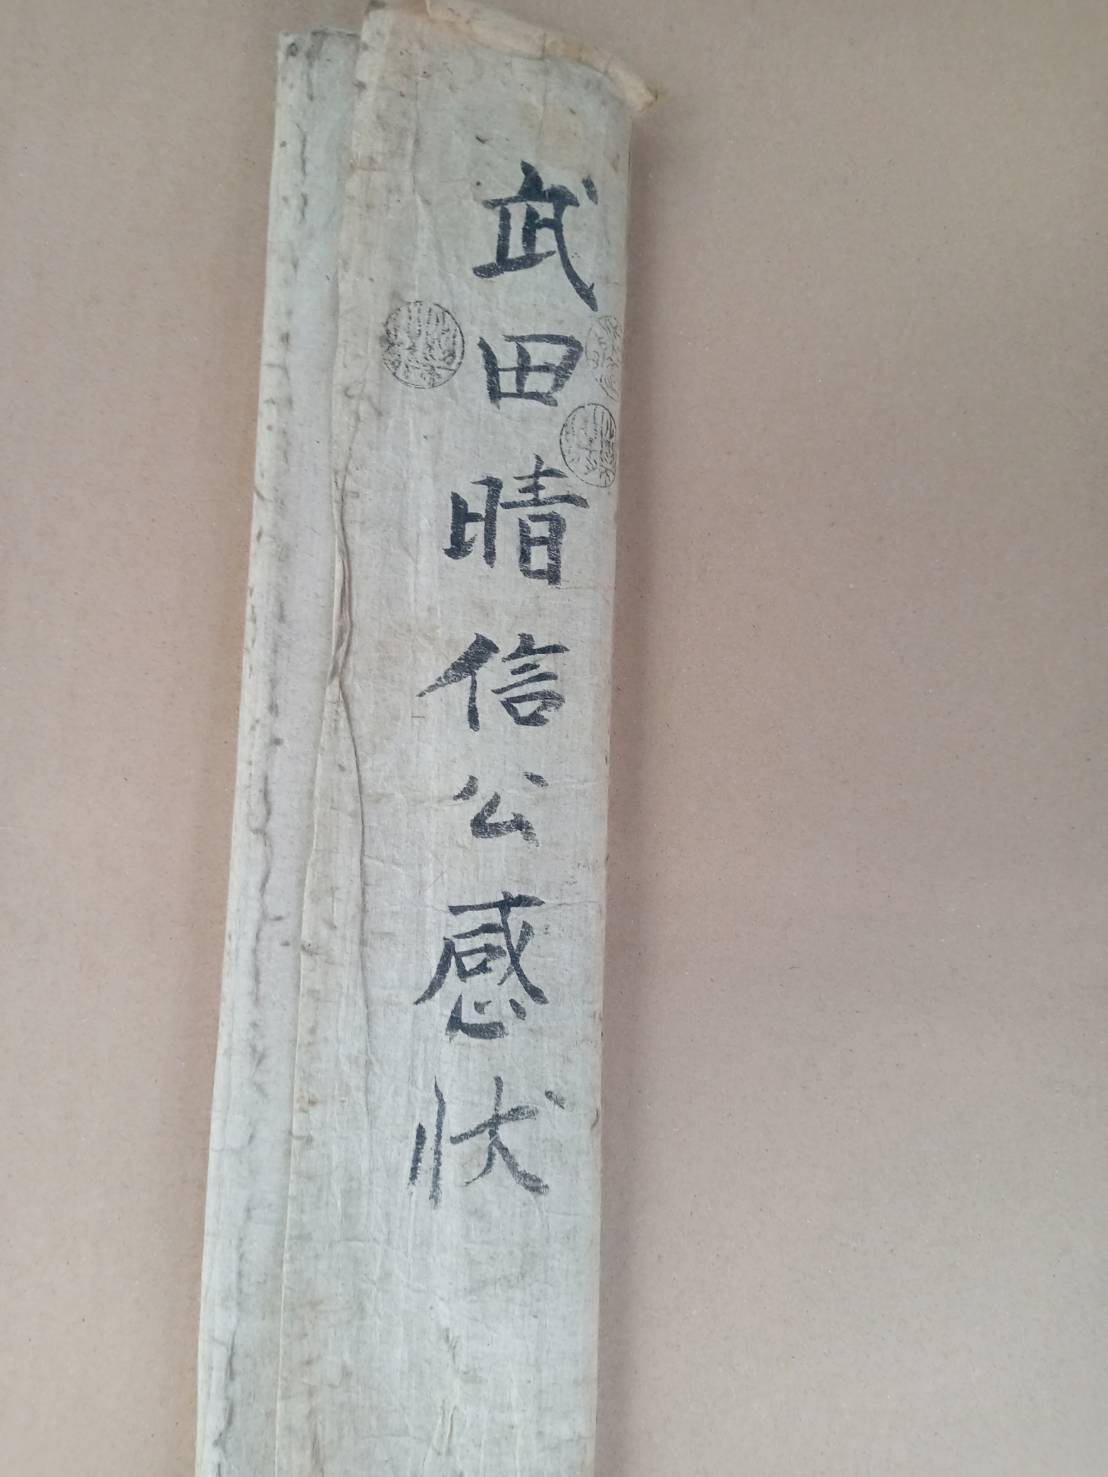 武田晴信公感状